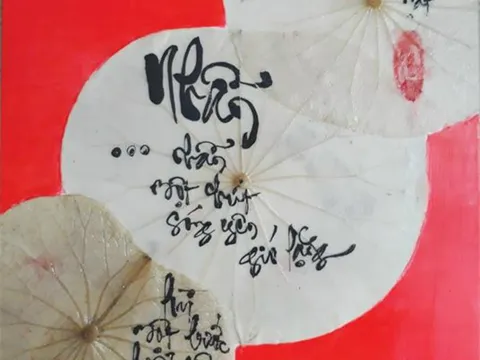 nhất
Nhẫn
... nhẫn
một chút
sóng yên
gió lặng
lùi
một bước